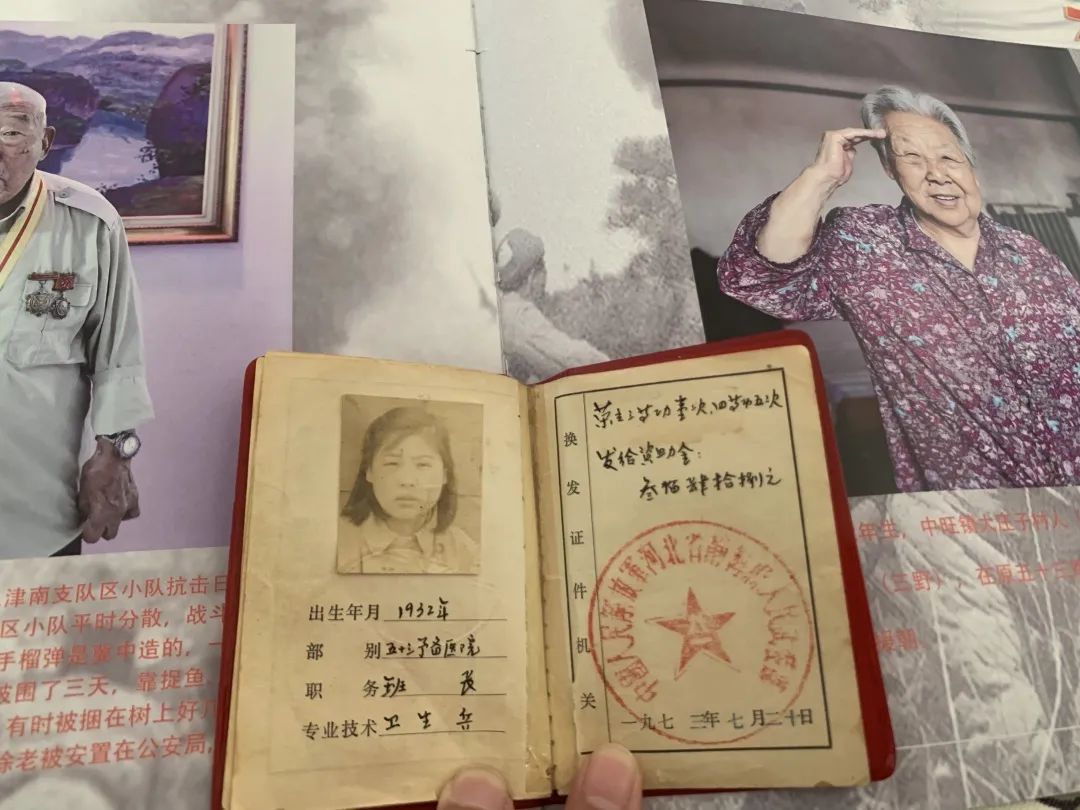 出生年月 1932年
部 别 五十三予备医院
职 务 班 长
专业技术 卫生兵
换发证件机关
荣立三等功壹次、四等功五次
发给资助金:
叁佰肆拾捌元
一九七三年七月二十日
津南支队区小队抗击日
区小队平时分散,战斗
手榴弹是冀中造的,一
被围了三天,靠捉鱼、
有时被捆在树上好几
徐老被安置在公安局,
年生,中旺镇大庄子村人
(三野),在原五十三